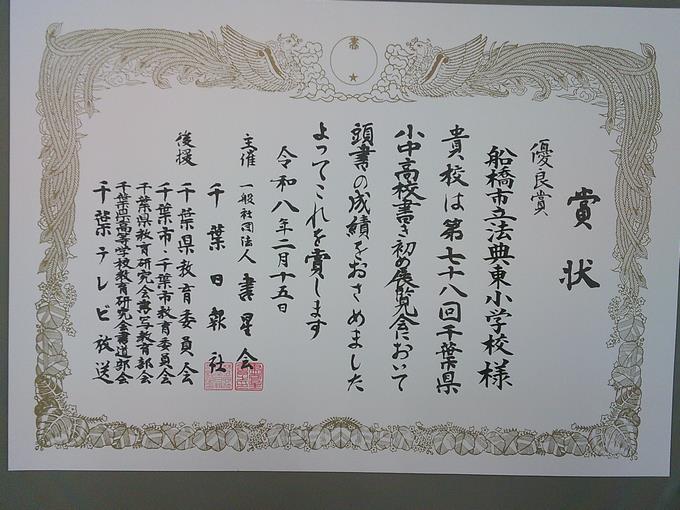 書
賞状
優良賞
船橋市立法典東小学校様
貴校は第七十八回千葉県
小中高校書き初め展覧会において
頭書の成績をおさめました
よってこれを賞します
令和八年二月十五日
主催 一般社団法人 書星会
千葉日報社
後援 千葉県教育委員会
千葉市・千葉市教育委員会
千葉県教育研究会書写教育部会
千葉県高等学校教育研究会書道部会
千葉テレビ放送